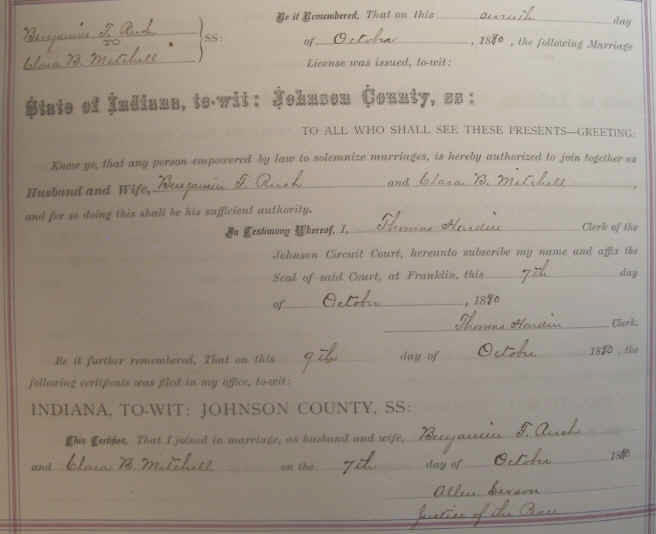 Benjamin F. Arch
TO
Clara B. Mitchell
} SS:
Be it Remembered, That on this day
of October, 1880, the following Marriage
License was issued, to-wit:
State of Indiana, to-wit: Johnson County, ss:
TO ALL WHO SHALL SEE THESE PRESENTS—GREETING:
Know ye, that any person empowered by law to solemnize marriages, is hereby authorized to join together as
Husband and Wife, Benjamin F. Arch and Clara B. Mitchell,
and for so doing this shall be his sufficient authority.
In Testimony Whereof, I, Thomas Hardin Clerk of the
Johnson Circuit Court, hereunto subscribe my name and affix the
Seal of said Court, at Franklin, this 7th day
of October, 1880
Thomas Hardin Clerk.
Be it further remembered, That on this 9th day of October 1880, the
following certificate was filed in my office, to-wit:
INDIANA, TO-WIT: JOHNSON COUNTY, SS:
This Certifies, That I joined in marriage, as husband and wife, Benjamin F. Arch
and Clara B. Mitchell on the 7th day of October 1880
Allen
Justice of the Peace